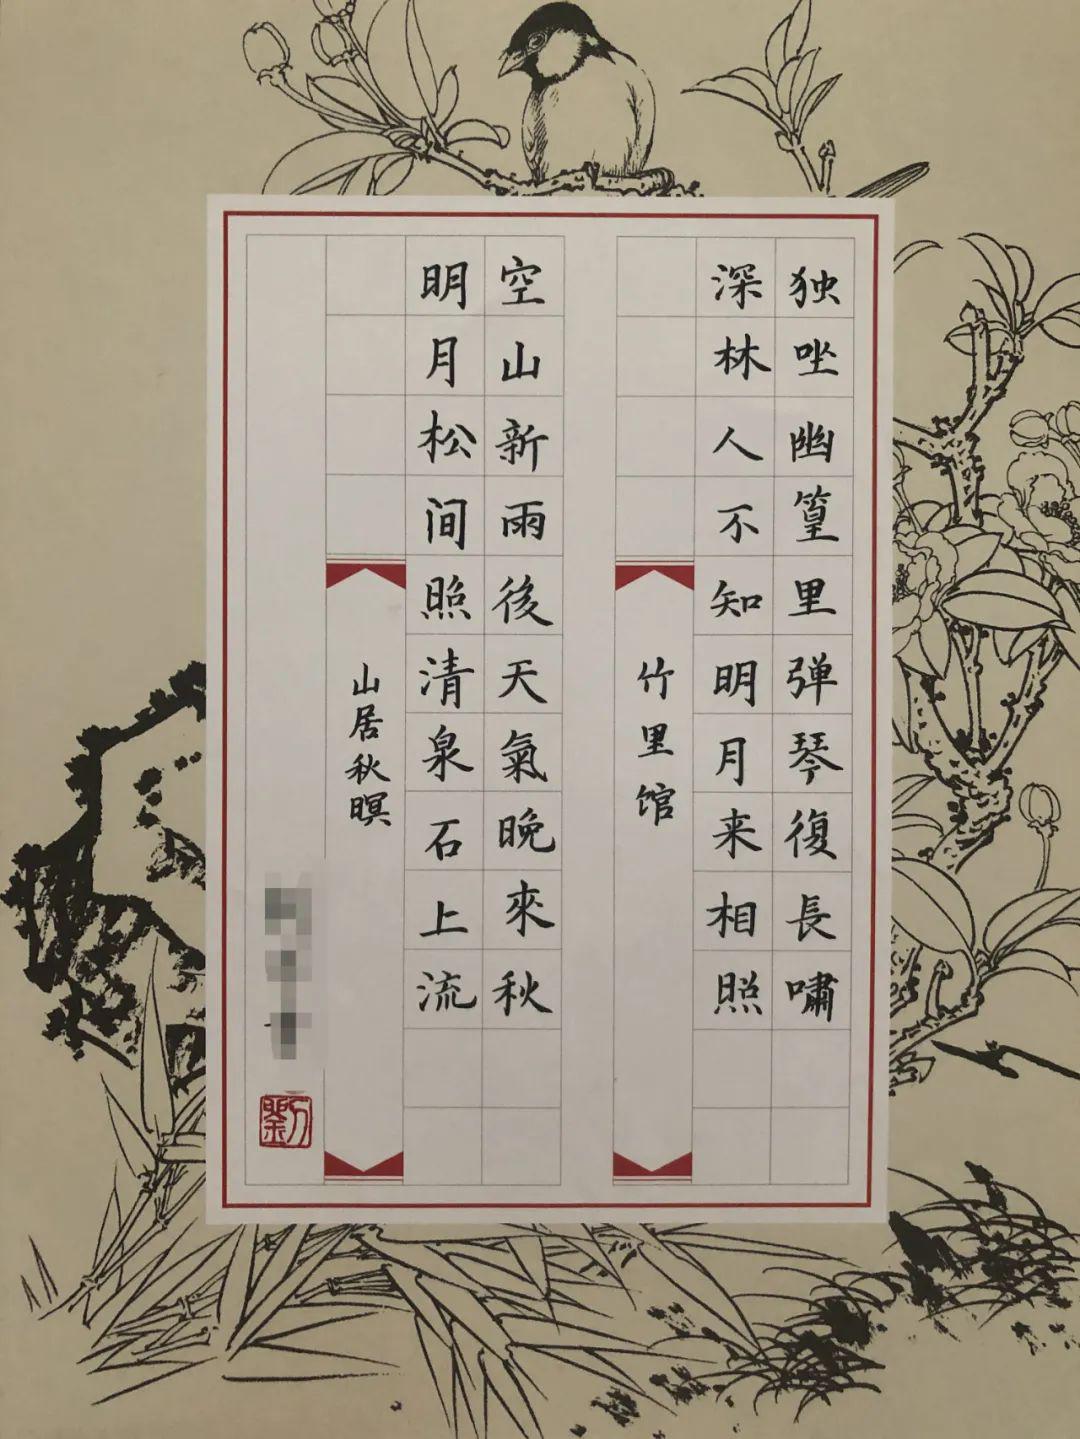 独坐幽篁里弹琴復長嘯
深林人不知明月来相照
竹里馆
空山新雨後天氣晚來秋
明月松间照清泉石上流
山居秋暝
劉